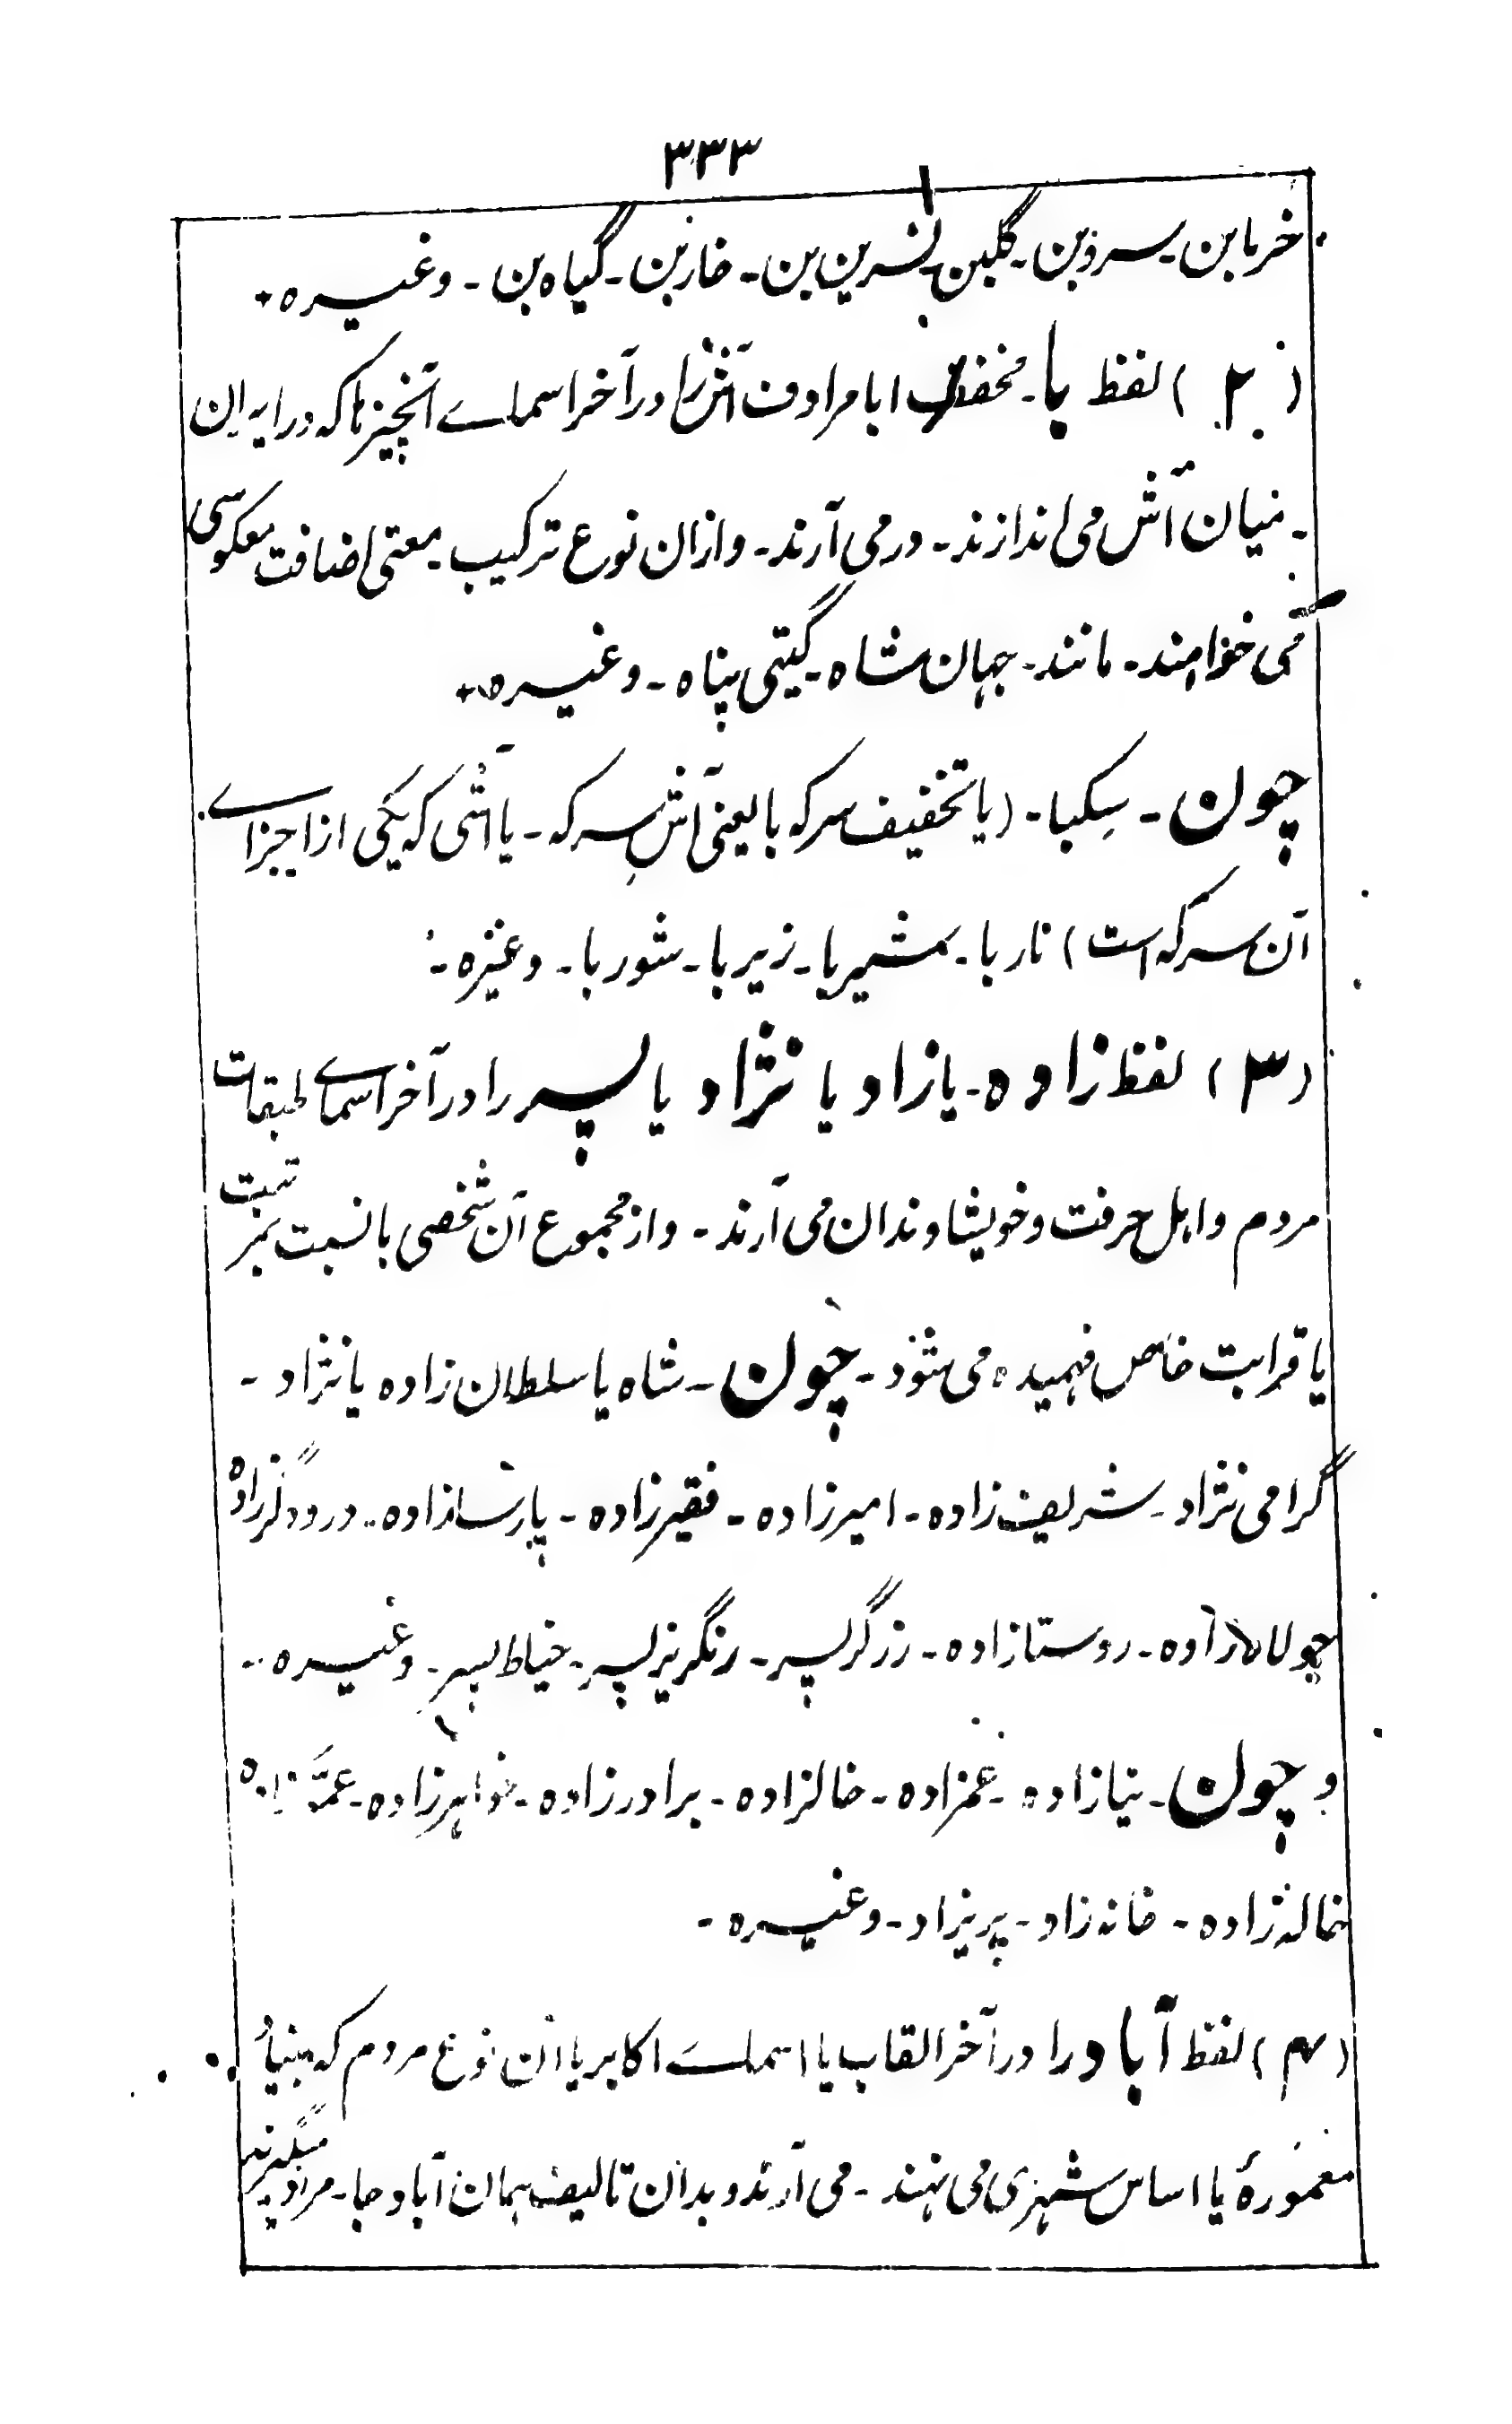 ۳۳۳
خرمابن ـ سروبن ـ گلبن ـ نسرین بن ـ خاربن ـ گیاه بن ـ وغیره ٭
(۲) لفظ با ـ مخفف ابا مرادف آش را در آخر اسماے آنچیزها که در ایران
ـ میان آش می اندازند ـ درمی آرند ـ وازان نوع ترکیب ـ معنی اضافت معکوسی
می خواهند ـ مانند ـ جهان شاه ـ گیتی پناه ـ وغیره ٭
چون ـ سِکبا ـ (یا تخفیف سرکه با یعنی آشِ سرکه ـ یا آشی که یکی از اجزاے
آن سرکه است) ناربا ـ شیربا ـ زیربا ـ شوربا ـ وغیره ـ
(۳) لفظ زاده ـ یا زاد یا نژاد یا پسر را در آخر اسماے طبقات
مردم و اهل حرفت و خویشاوندان می آرند ـ و از مجموع آن شخصی با نسبت تربیت
یا قرابت خاص فهمیده می شود ـ چون ـ شاه یا سلطان زاده یا نژاد ـ
گرامی نژاد ـ شریف زاده ـ امیرزاده ـ فقیرزاده ـ پارسازاده ـ درودگرزاده
جولاهزاده ـ روستازاده ـ زرگرپسر ـ رنگریزپسر ـ خیاط پسر ـ وغیره ـ
و چون ـ نیازاده ـ عمزاده ـ خالزاده ـ برادرزاده ـ خواهرزاده ـ عمّه زاده
خاله زاده ـ خانه زاد ـ پریزاد ـ وغیره ـ
(۴) لفظ آباد را در آخر القاب یا اسماے اکابر یا آن نوع مردم که بنیاد
معمورهٔ یا اساس شهری می نهند ـ می آرند و بدان تالیف همان آباد جا ـ مراد میگیرند